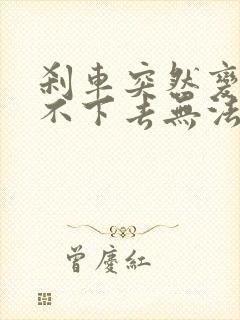 刹車突然變
不下去無法
曾慶紅